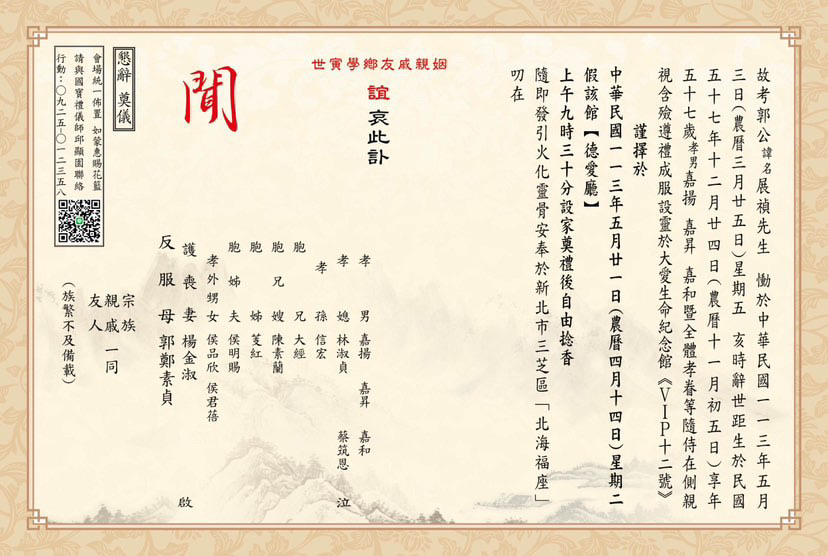 故考郭公諱名展禎先生　慟於中華民國一一三年五月
三日(農曆三月廿五日)星期五　亥時辭世距生於民國
五十七年十二月廿四日(農曆十一月初五日)享年
五十七歲孝男嘉揚　嘉昇　嘉和暨全體孝眷等隨侍在側親
視含殮遵禮成服設靈於大愛生命紀念館《VIP十二號》
謹擇於
中華民國一一三年五月廿一日(農曆四月十四日)星期二
假該館【德愛廳】
上午九時三十分設家奠禮後自由捻香
隨即發引火化靈骨安奉於新北市三芝區「北海福座」
叨在
姻親戚友鄉學寅世
誼哀此訃
聞
孝男 嘉揚 嘉昇 嘉和
孝媳 林淑貞 蔡筑恩 泣
孝孫 信宏
胞兄 大經
胞兄嫂 陳素蘭
胞姊 芰紅
胞姊夫 侯明賜
孝外甥女 侯品欣 侯君蓓
護喪妻 楊金淑 啟
反服母 郭鄭素貞
宗族
親戚一同
友人
(族繁不及備載)
懇辭 奠儀
會場統一佈置　如蒙惠賜花籃
請與國寶禮儀師邱顯園聯絡
行動：〇九二五-〇一二三五八